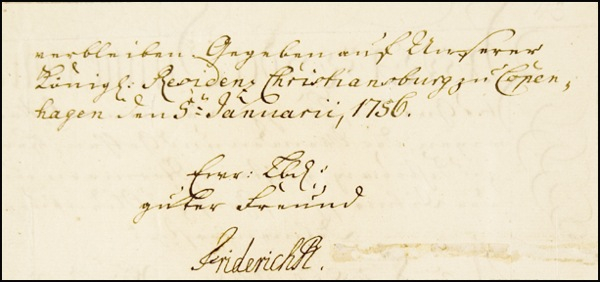 verbleiben. Gegeben auf Unserer
Königl: Residenz Christiansburg zu Copen,
hagen den 5ten Januarii, 1756.
Ewr: Lbd:
guter Freund
Friderich R.